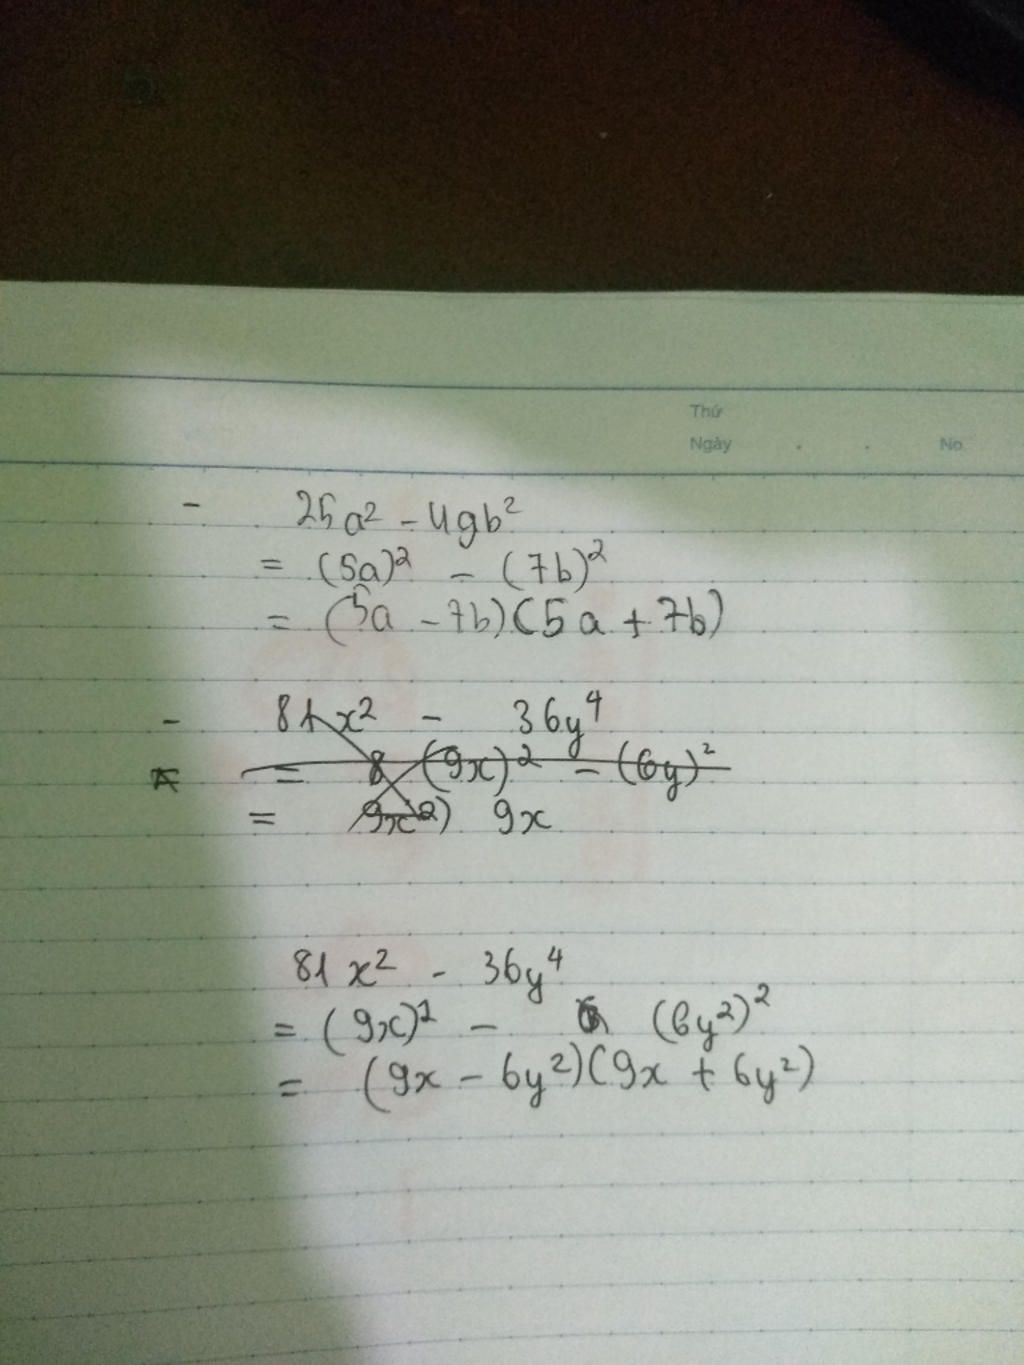 Thứ
Ngày . . No
- 25a² - 49b²
= (5a)² - (7b)²
= (5a - 7b)(5a + 7b)
- 81x² - 36y⁴
= 8 (9x)² - (6y)²
= 9x²) 9x
81x² - 36y⁴
= (9x)² - (6y²)²
= (9x - 6y²)(9x + 6y²)